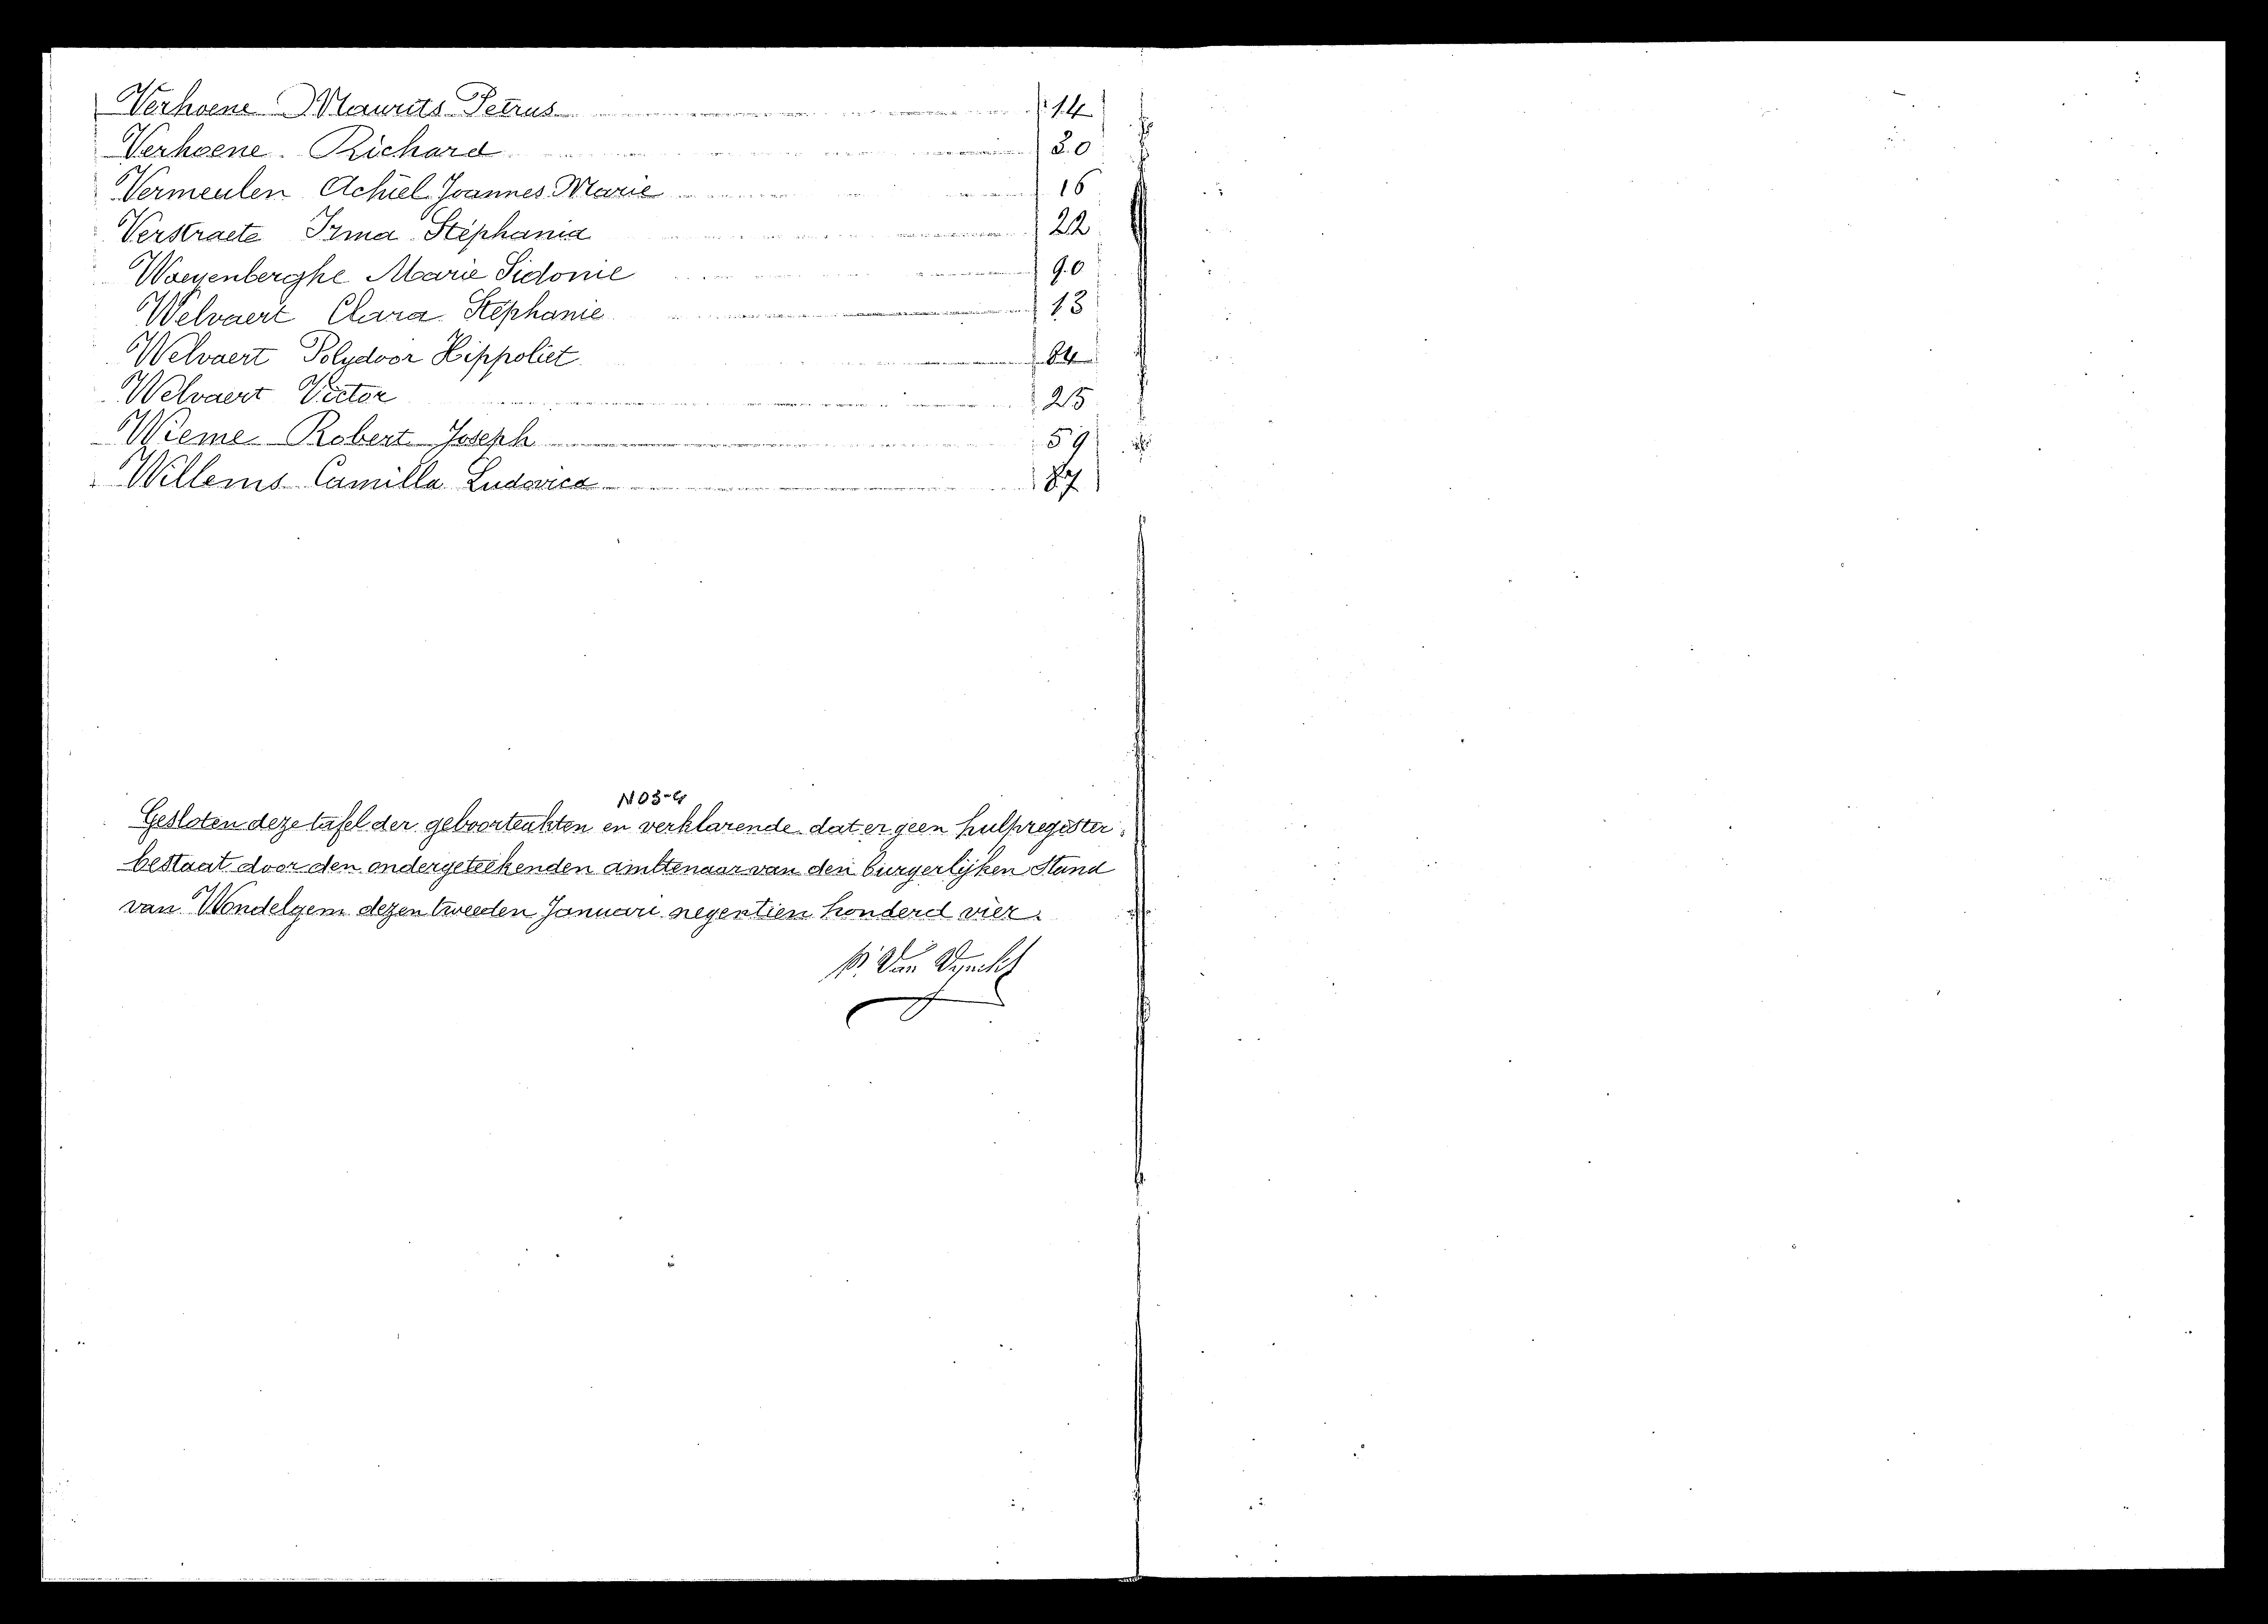 Verhoene Maurits Petrus 14
Verhoene Richard 30
Vermeulen Achiel Joannes Marie 16
Verstraete Irma Stéphania 22
Waeyenberghe Marie Sidonie 90
Welvaert Clara Stéphanie 13
Welvaert Polydoor Hippoliet 84
Welvaert Victor 25
Wieme Robert Joseph 59
Willems Camilla Ludovica 87
N03-4
Gesloten deze tafel der geboorteakten en verklarende dat er geen hulpregister
bestaat door den ondergeteekenden ambtenaar van den burgerlijken Stand
van Wondelgem dezen tweeden Januari negentien honderd vier.
Van